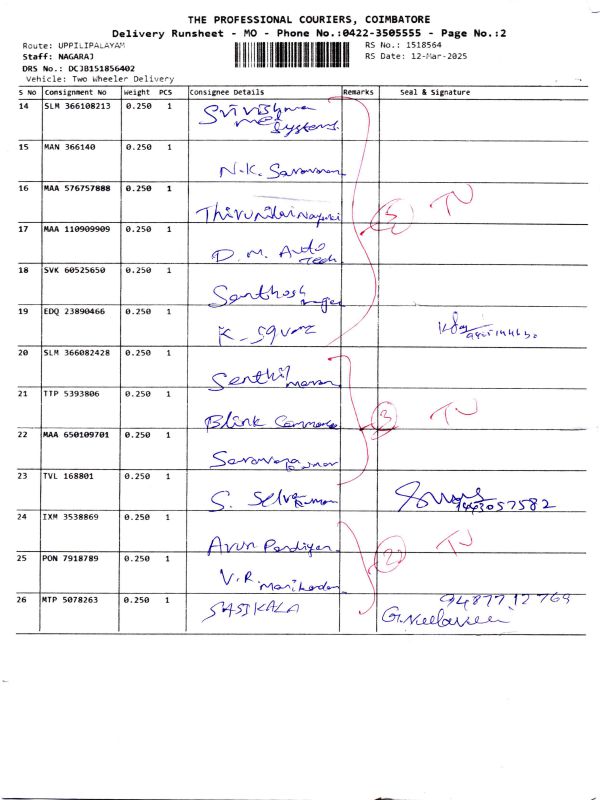 THE PROFESSIONAL COURIERS, COIMBATORE
Delivery Runsheet - MO - Phone No.:0422-3505555 - Page No.:2
Route: UPPILIPALAYAM
RS No.: 1518564
Staff: NAGARAJ
RS Date: 12-Mar-2025
DRS No.: DCJB151856402
Vehicle: Two Wheeler Delivery
S No Consignment No Weight PCS Consignee Details Remarks Seal & Signature
14 SLM 366108213 0.250 1 Systems
15 MAN 366140 0.250 1 N.K. Saravanan
16 MAA 576757888 0.250 1
5 TV
17 MAA 110909909 0.250 1 D. M. Auto Tech
18 SVK 60525650 0.250 1 Santhosh
19 EDQ 23890466 0.250 1 K. Square
20 SLM 366082428 0.250 1 Senthil
21 TTP 5393806 0.250 1 Blink Commerce
3 TV
22 MAA 650109701 0.250 1
23 TVL 168801 0.250 1 S. Selva
24 IXM 3538869 0.250 1 Arun Pandiyan
TV
25 PON 7918789 0.250 1 V.R.
26 MTP 5078263 0.250 1 SASIKALA 9487712769